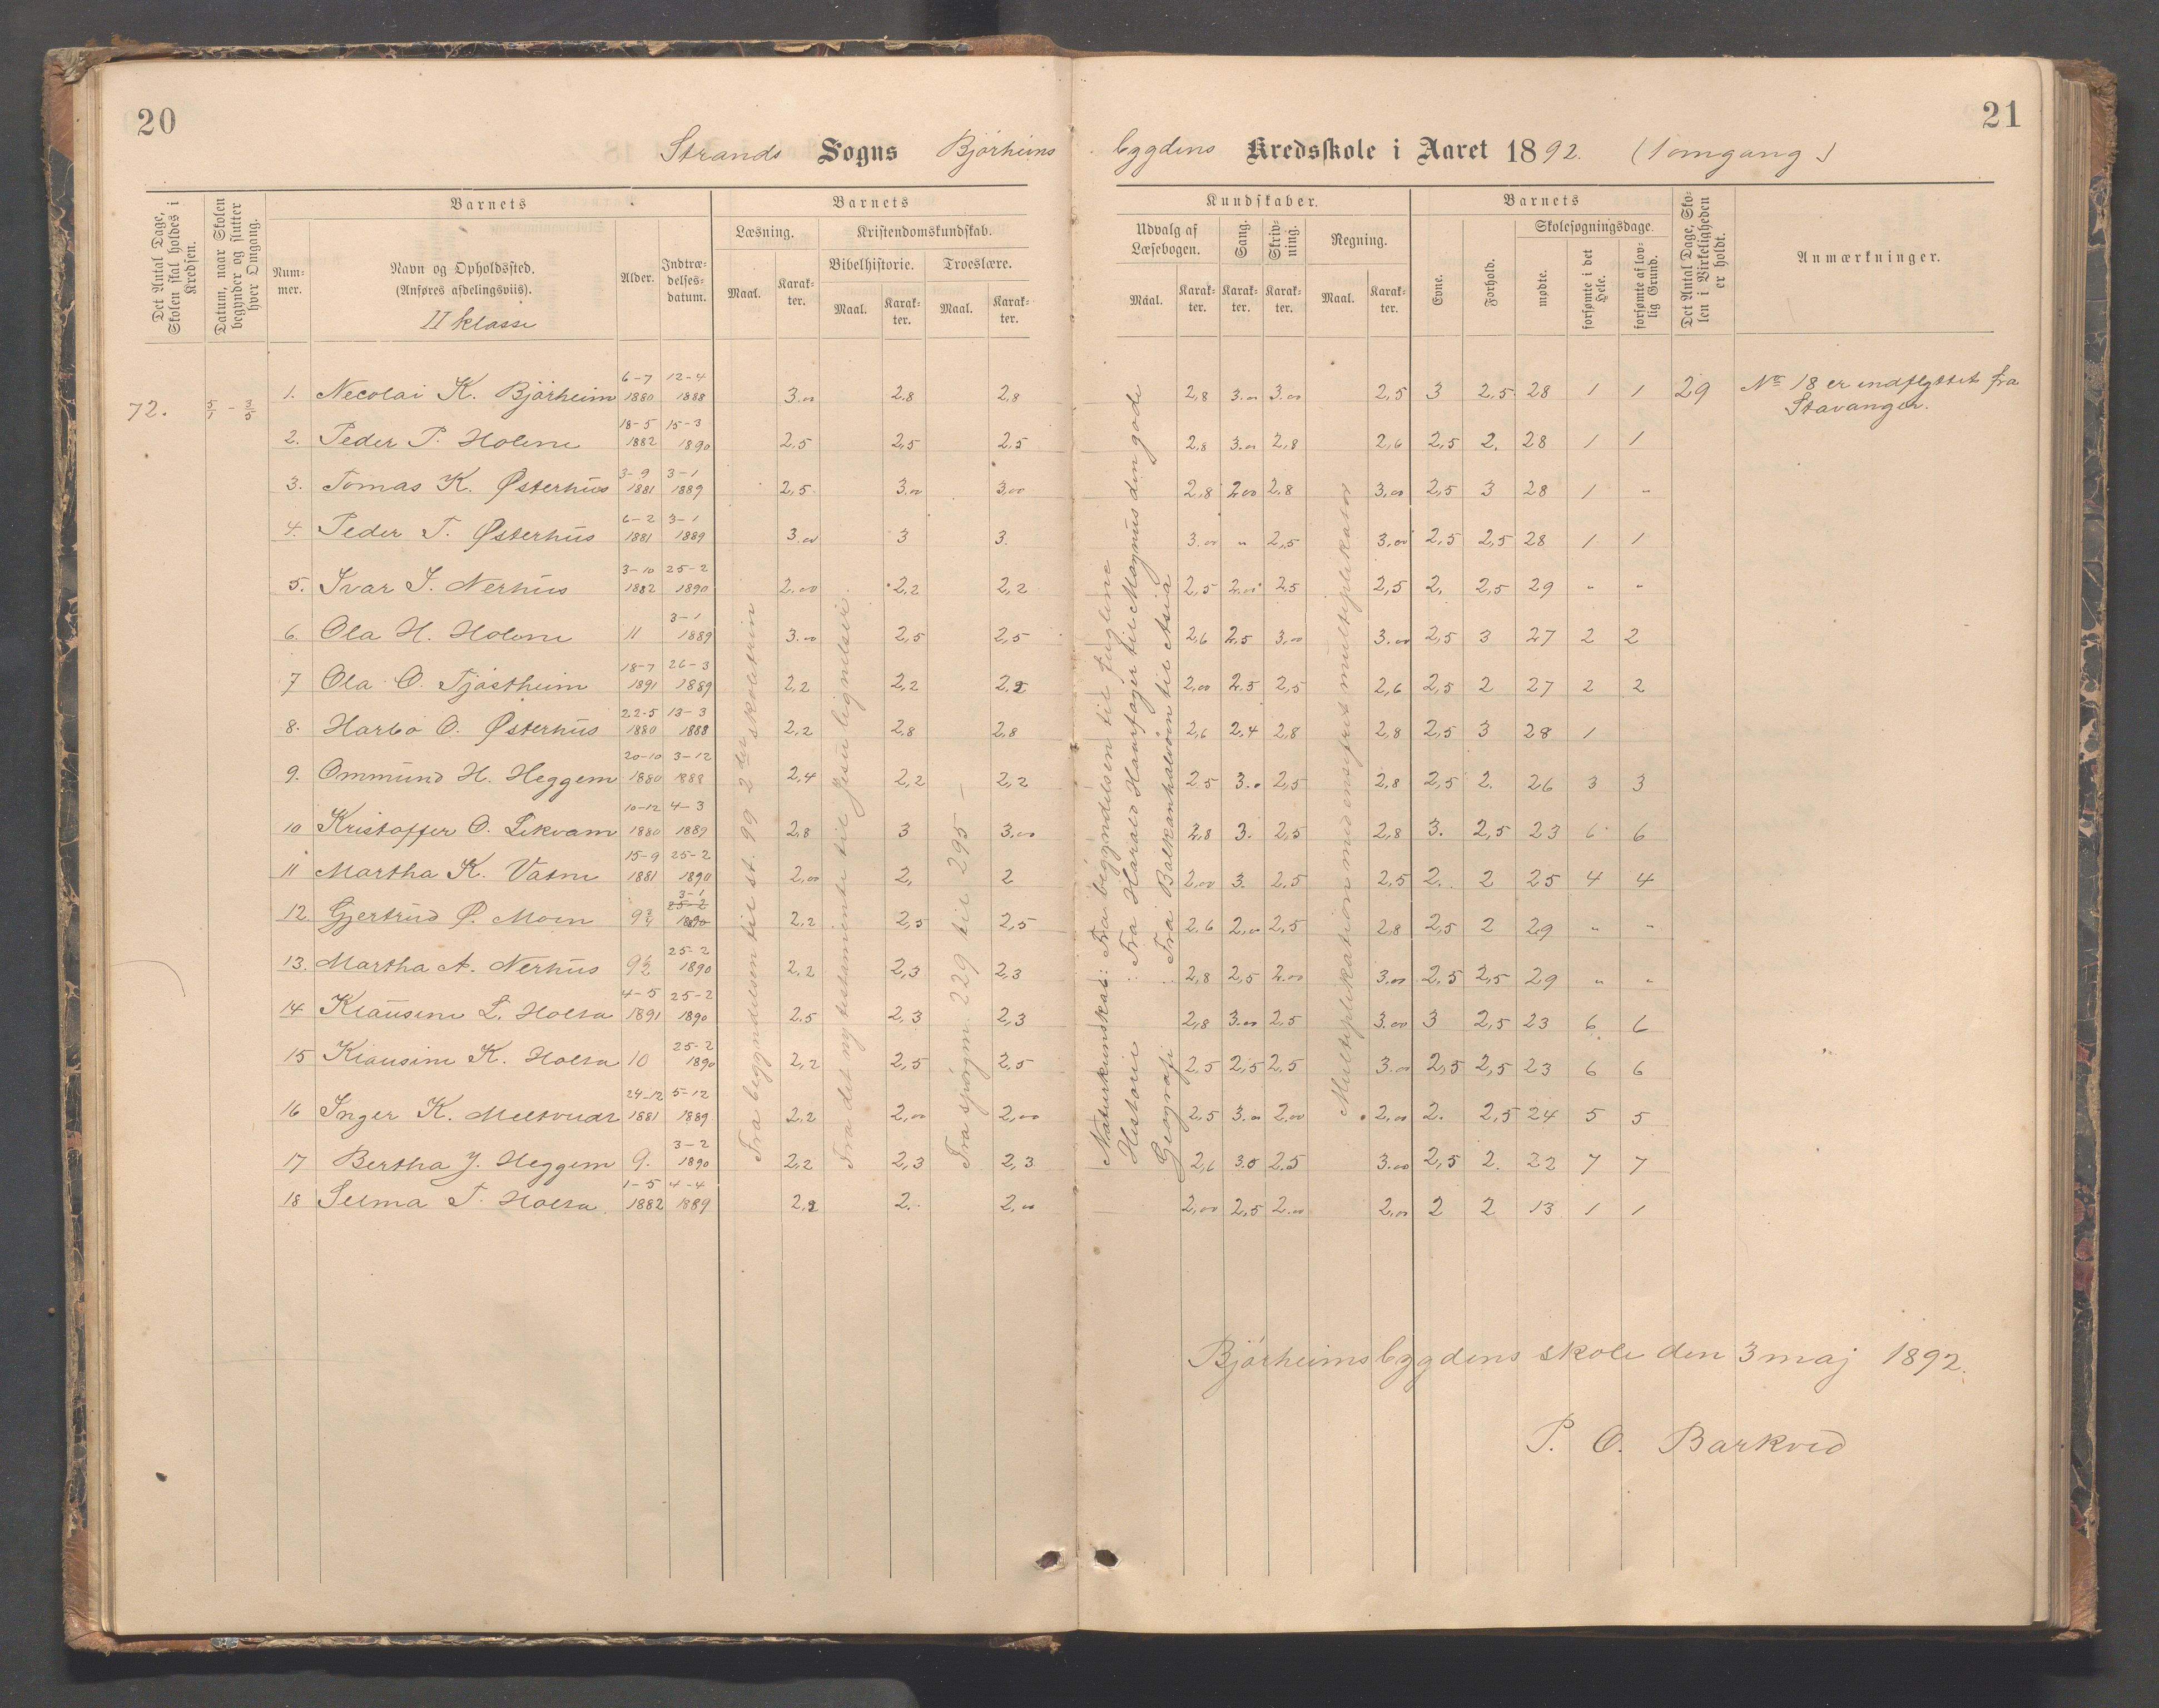 20
21
Strands Sogns Björheims
bygdens Kredsskole i Aaret 1892. (1 omgang)
Det Antal Dage, Skolen skal holdes i Kredsen.
Datum, naar Skolen begynder og slutter hver Omgang.
Barnets
Num-mer.
Navn og Opholdssted.
(Anføres afdelingsviis).
II klasse
Alder.
Indtræ-delses-datum.
Barnets
Læsning.
Maal.
Karak-ter.
Kristendomskundskab.
Bibelhistorie.
Maal.
Karak-ter.
Troeslære.
Maal.
Karak-ter.
Kundskaber.
Udvalg af Læsebogen.
Maal.
Karak-ter.
Sang.
Karak-ter.
Skriv-ning.
Karak-ter.
Regning.
Maal.
Karak-ter.
Barnets
Evne.
Forhold.
Skolesøgningsdage.
mødte.
forsømte i det Hele.
forsømte af lov-lig Grund.
Det Antal Dage, Sko-len i Virkeligheden er holdt.
Anmærkninger.
72. 5/1 – 3/5
1. Necolai K. Björheim 6-7 1880 12-4 1888 3.00 2.8 2,8 2,8 3.00 3.00 2,5 3 2,5 28 1 1 29 No 18 er indflyttet fra Stavanger.
2. Peder P. Holene 18-5 1882 15-3 1890 2,5 2,5 2,5 2,8 3.00 2,8 2,6 2,5 2. 28 1 1
3. Tomas K. Østerhus 3-9 1881 3-1 1889 2,5 3.00 3,00 2,8 2,00 2,8 3,00 2,5 3 28 1 "
4. Peder T. Østerhus 6-2 1881 3-1 1889 3.00 3 3. 3.00 " 2,5 3,00 2,5 2,5 28 1 1
5. Ivar I. Nerhus 3-10 1882 25-2 1890 2,00 2,2 2,2 2,5 2.00 2,5 2,5 2. 2,5 29 " "
6. Ola H. Holene 11 3-1 1889 3.00 2,5 2,5 2,6 2,5 3,00 3.00 2,5 3 27 2 2
7 Ola O. Tjöstheim 18-7 1891 26-3 1889 2,2 2,2 2,2 2,00 2.5 2,5 2,6 2,5 2 27 2 2
8. Harbo O. Østerhus 22-5 1880 13-3 1888 2,2 2,8 2,8 2,6 2,4 2,8 2,8 2,5 3 28 1
9. Ommund H. Heggem 20-10 1880 3-12 1888 2,4 2,2 2,2 2,5 3.0 2,5 2,8 2,5 2. 26 3 3
10 Kristoffer O. Lekvam 10-12 1880 4-3 1889 2,8 3 3.00 2,8 3. 2,5 2,8 3. 2,5 23 6 6
11 Martha K. Vatne 15-9 1881 25-2 1890 2,00 2, 2 2,00 3. 2,5 2,5 2. 2 25 4 4
12. Gjertrud Ø. Moen 9 3/4 3-1 25-2 1890 2,2 2,5 2,5 2.6 2,00 2,5 2,8 2,5 2 29 " "
13. Martha A. Nerhus 9 1/2 25-2 1890 2,2 2,3 2,3 2,8 2,5 2.00 3.00 2,5 2,5 29 " "
14 Klausine L. Holta 4-5 1891 25-2 1890 2,5 2,3 2,3 2,8 3.00 2,5 3.00 3 2,5 23 6 6
15 Klausine K. Holta 10 25-2 1890 2,2 2,5 2,5 2.5 2,5 2.5 3.00 2,5 2,5 23 6 6
16 Inger K. Meltvedt 24-12 1881 5-12 1889 2,2 2,00 2,00 2,5 3.00 2.00 2,00 2. 2,5 24 5 5
17 Bertha J. Heggem 9. 3-2 1890 2,2 2,3 2,3 2,6 3.0 2.5 3.00 2,5 2. 22 7 7
18 Selma T. Holta 1-5 1882 4-4 1889 2,2 2. 2,00 2,00 2,5 2.00 2.00 2 2 13 1 1
Fra begyndelsen til st. 99 2den skoletrin
Fra det ny testamente til Jesu lignelser.
Fra spörgm. 229 til 295 –
Naturkunskab: Fra begyndelsen til fuglene
Historie : Fra Harald Haarfager til Magnus den gode
Geografi : Fra Balkanhalvöen til Asia
Multiplikation med ensifret multiplikator
Björheimsbygdens skole den 3 maj 1892.
P. O. Barkved